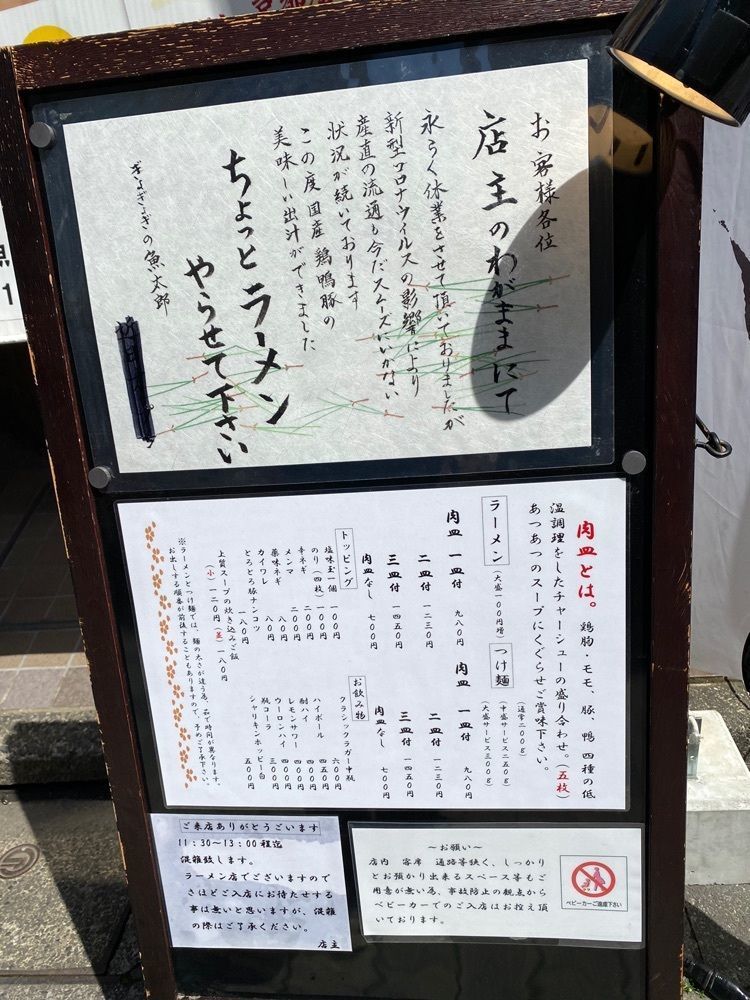 お客様各位
店主のわがままにて
永らく休業をさせて頂いておりましたが
新型コロナウイルスの影響により
産直の流通も今だスムーズにいかない
状況が続いております
この度国産 鶏鴨豚の
美味しい出汁ができました
ちょっとラーメン
やらせて下さい
ぎょぎょぎょの魚太郎
肉皿とは。 鶏胸・モモ、豚、鴨四種の低
温調理をしたチャーシューの盛り合わせ。(五枚)
あつあつのスープにくぐらせご賞味下さい。
ラーメン (大盛一00円増)
肉皿 一皿付 九八0円
二皿付 一二三0円
三皿付 一四五0円
肉皿なし 七00円
つけ麺 (通常二00g)
(中盛サービス二五0g)
(大盛サービス三00g)
肉皿 一皿付 九八0円
二皿付 一二三0円
三皿付 一四五0円
肉皿なし 七00円
トッピング
塩味玉一個 一00円
のり(四枚) 一00円
辛ネギ 二00円
メンマ 二00円
薬味ネギ 八0円
カイワレ 八0円
とろとろ豚ナンコツ 一八0円
上質スープの炊き込みご飯
(小)一二0円 (並)一八0円
お飲み物
クラシックラガー中瓶 六00円
ハイボール 四五0円
酎ハイ 四00円
レモンサワー 四00円
ウーロンハイ 四00円
瓶コーラ 三00円
シャリキンホッピー白 五00円
※ラーメンとつけ麺では、麺の太さが違う為、茹で時間が異なります。
お出しする順番が前後することもありますので、予めご了承下さい。
ご来店ありがとうございます
11:30~13:00 程迄
混雑致します。
ラーメン店でございますので
さほどご入店にお待たせする
事は無いと思いますが、混雑
の際はご了承ください。
店主
~お願い~
店内 客席 通路等狭く、しっかり
とお預かり出来るスペース等もご
用意が無い為、事故防止の観点から
ベビーカーでのご入店はお控え頂
いております。
ベビーカーご遠慮下さい